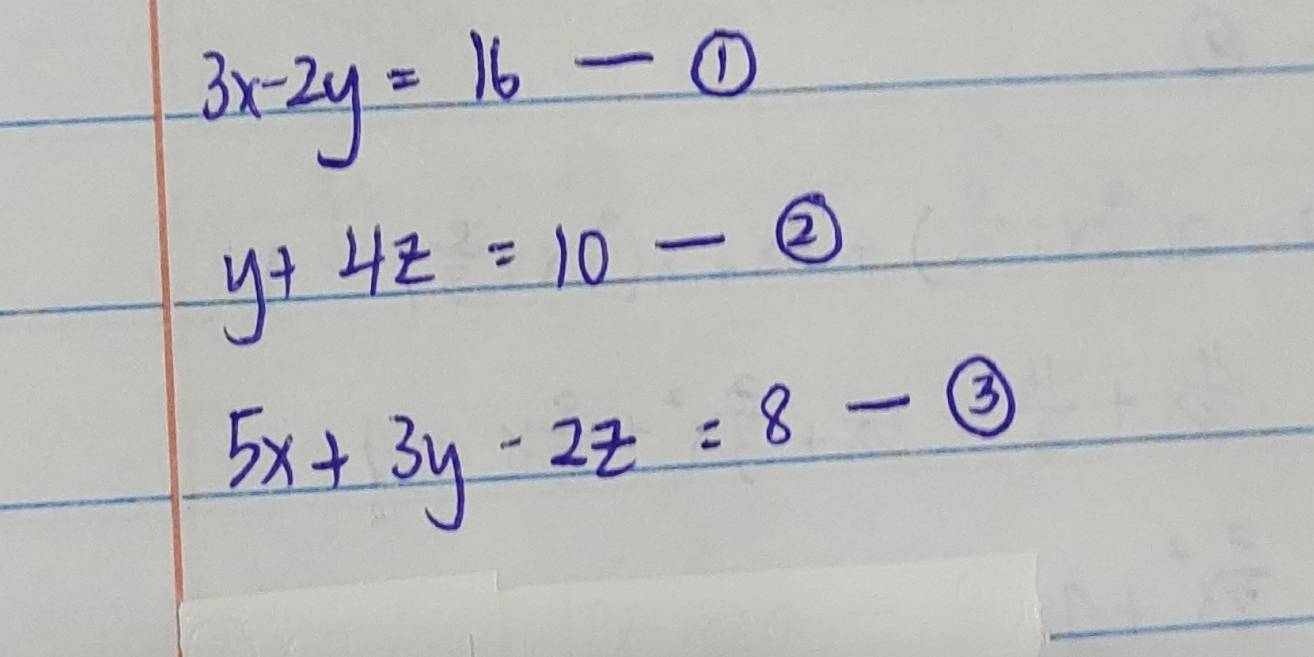 3x-2y = 16 — ①
y+ 4z = 10 — ②
5x+ 3y - 2z = 8 — ③